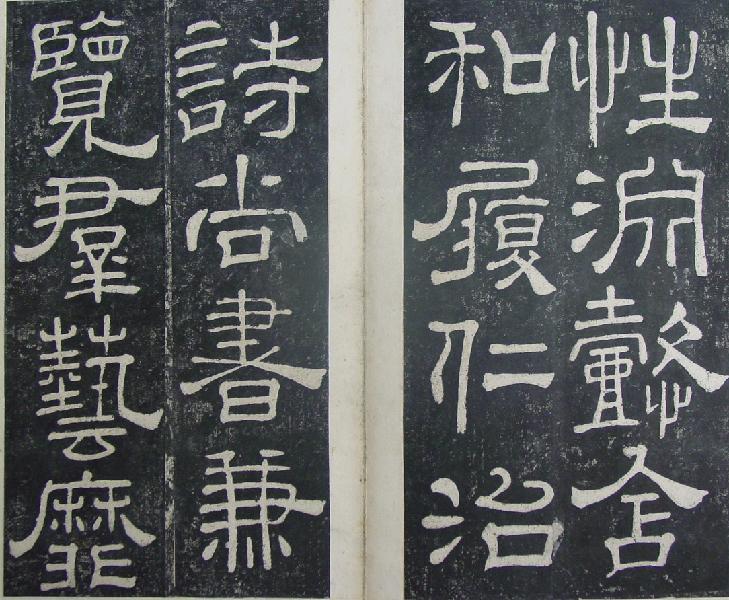 性淵懿含
和履仁治
詩尚書兼
覽羣藝靡